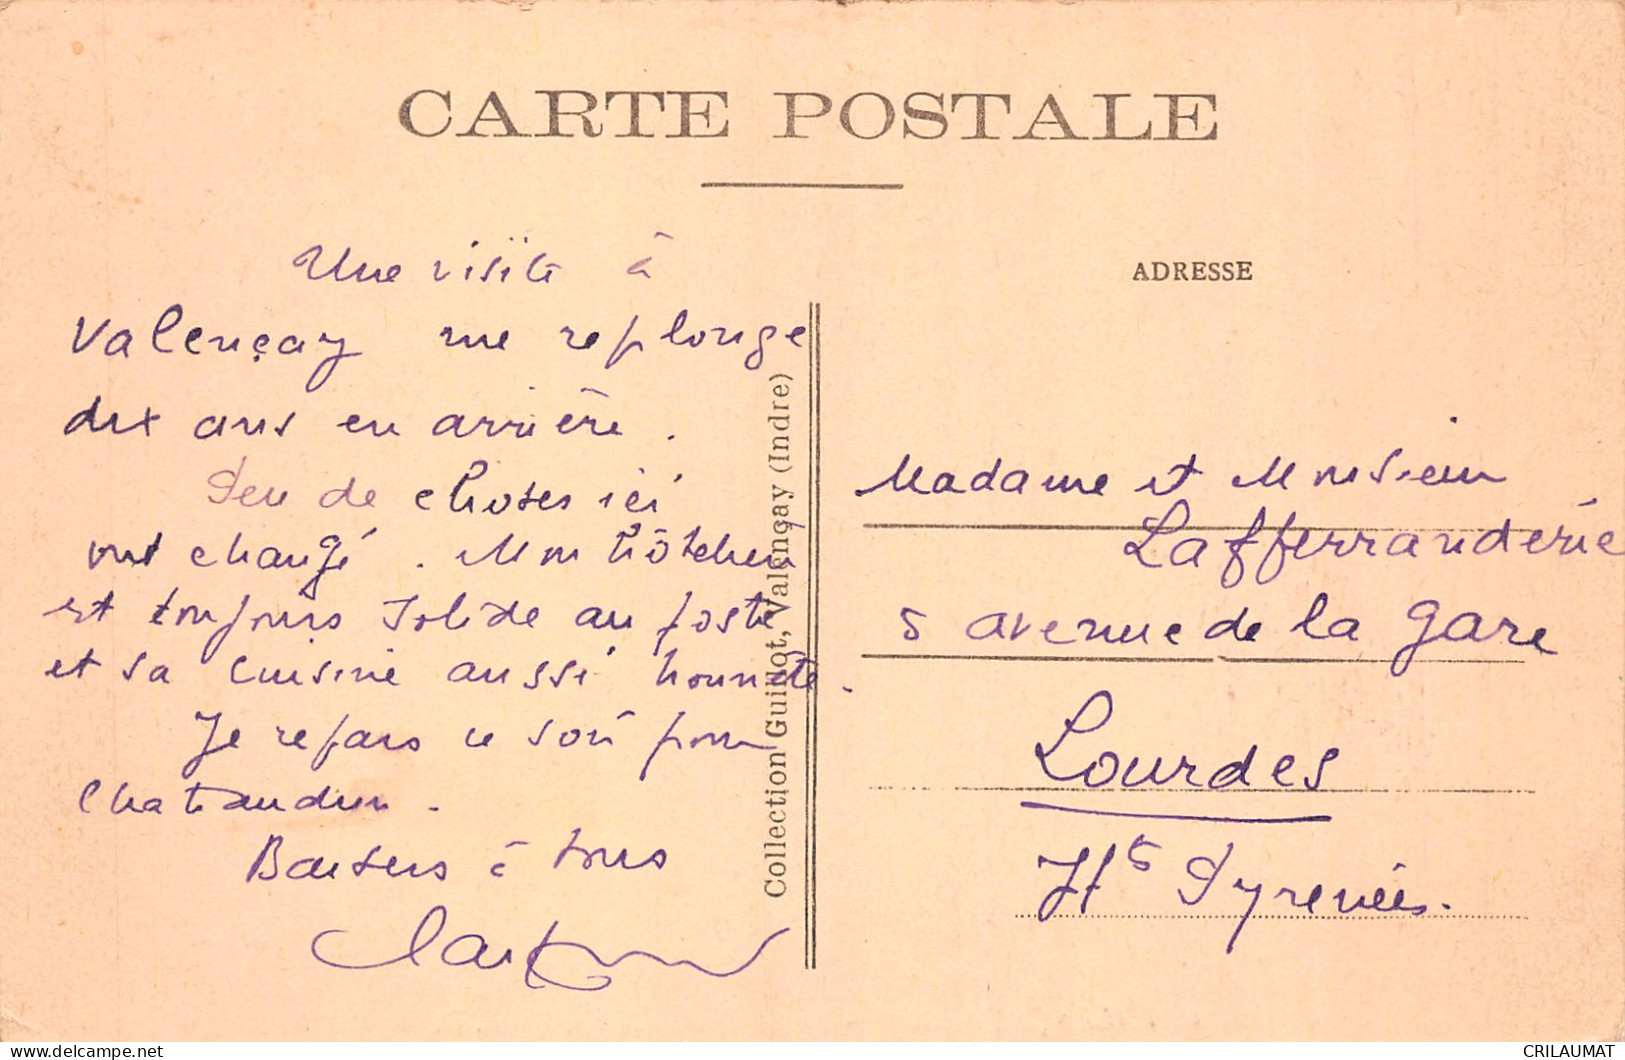 CARTE POSTALE
Une visite à
Valençay me replonge
dix ans en arrière.
Peu de choses ici
ont changé. Mon hôtelier
est toujours solide au poste
et sa cuisine aussi honnête.
Je repars ce soir pour
Chateaudun.
Baisers à tous
Collection Guillot, Valençay (Indre)
ADRESSE
Madame et Monsieur
Lafferranderie
5 avenue de la gare
Lourdes
Htes Pyrenées.
CRILAUMAT